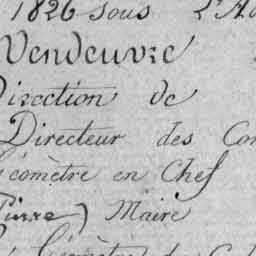 1826 sous L'A
Vendeuvre
Direction de
Directeur des Con
Géomètre en Chef
Pierre) Maire